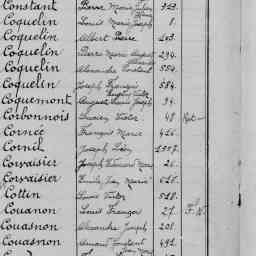 Constant Pierre Marie Julien 929.
Coquelin Louis Marie Joseph 1.
Coquelin Albert Pierre 203.
Coquelin Pierre Marie August 294.
Coquelin Alexandre Constant 554.
Coquelin Joseph François 584.
Coquemont Auguste Joseph 94.
Corbonnois Lucien Victor 48
Cornée François Marie 426.
Cornil Joseph
Corvaisier Joseph Marie 26.
Corvaisier Emile Jean Marie 618.
Cottin Louis Victor 518.
Couanon Louis François 27.
Couasnon Alexandre Joseph 201.
Couasnon Armand Constant 491.
Jean Marie